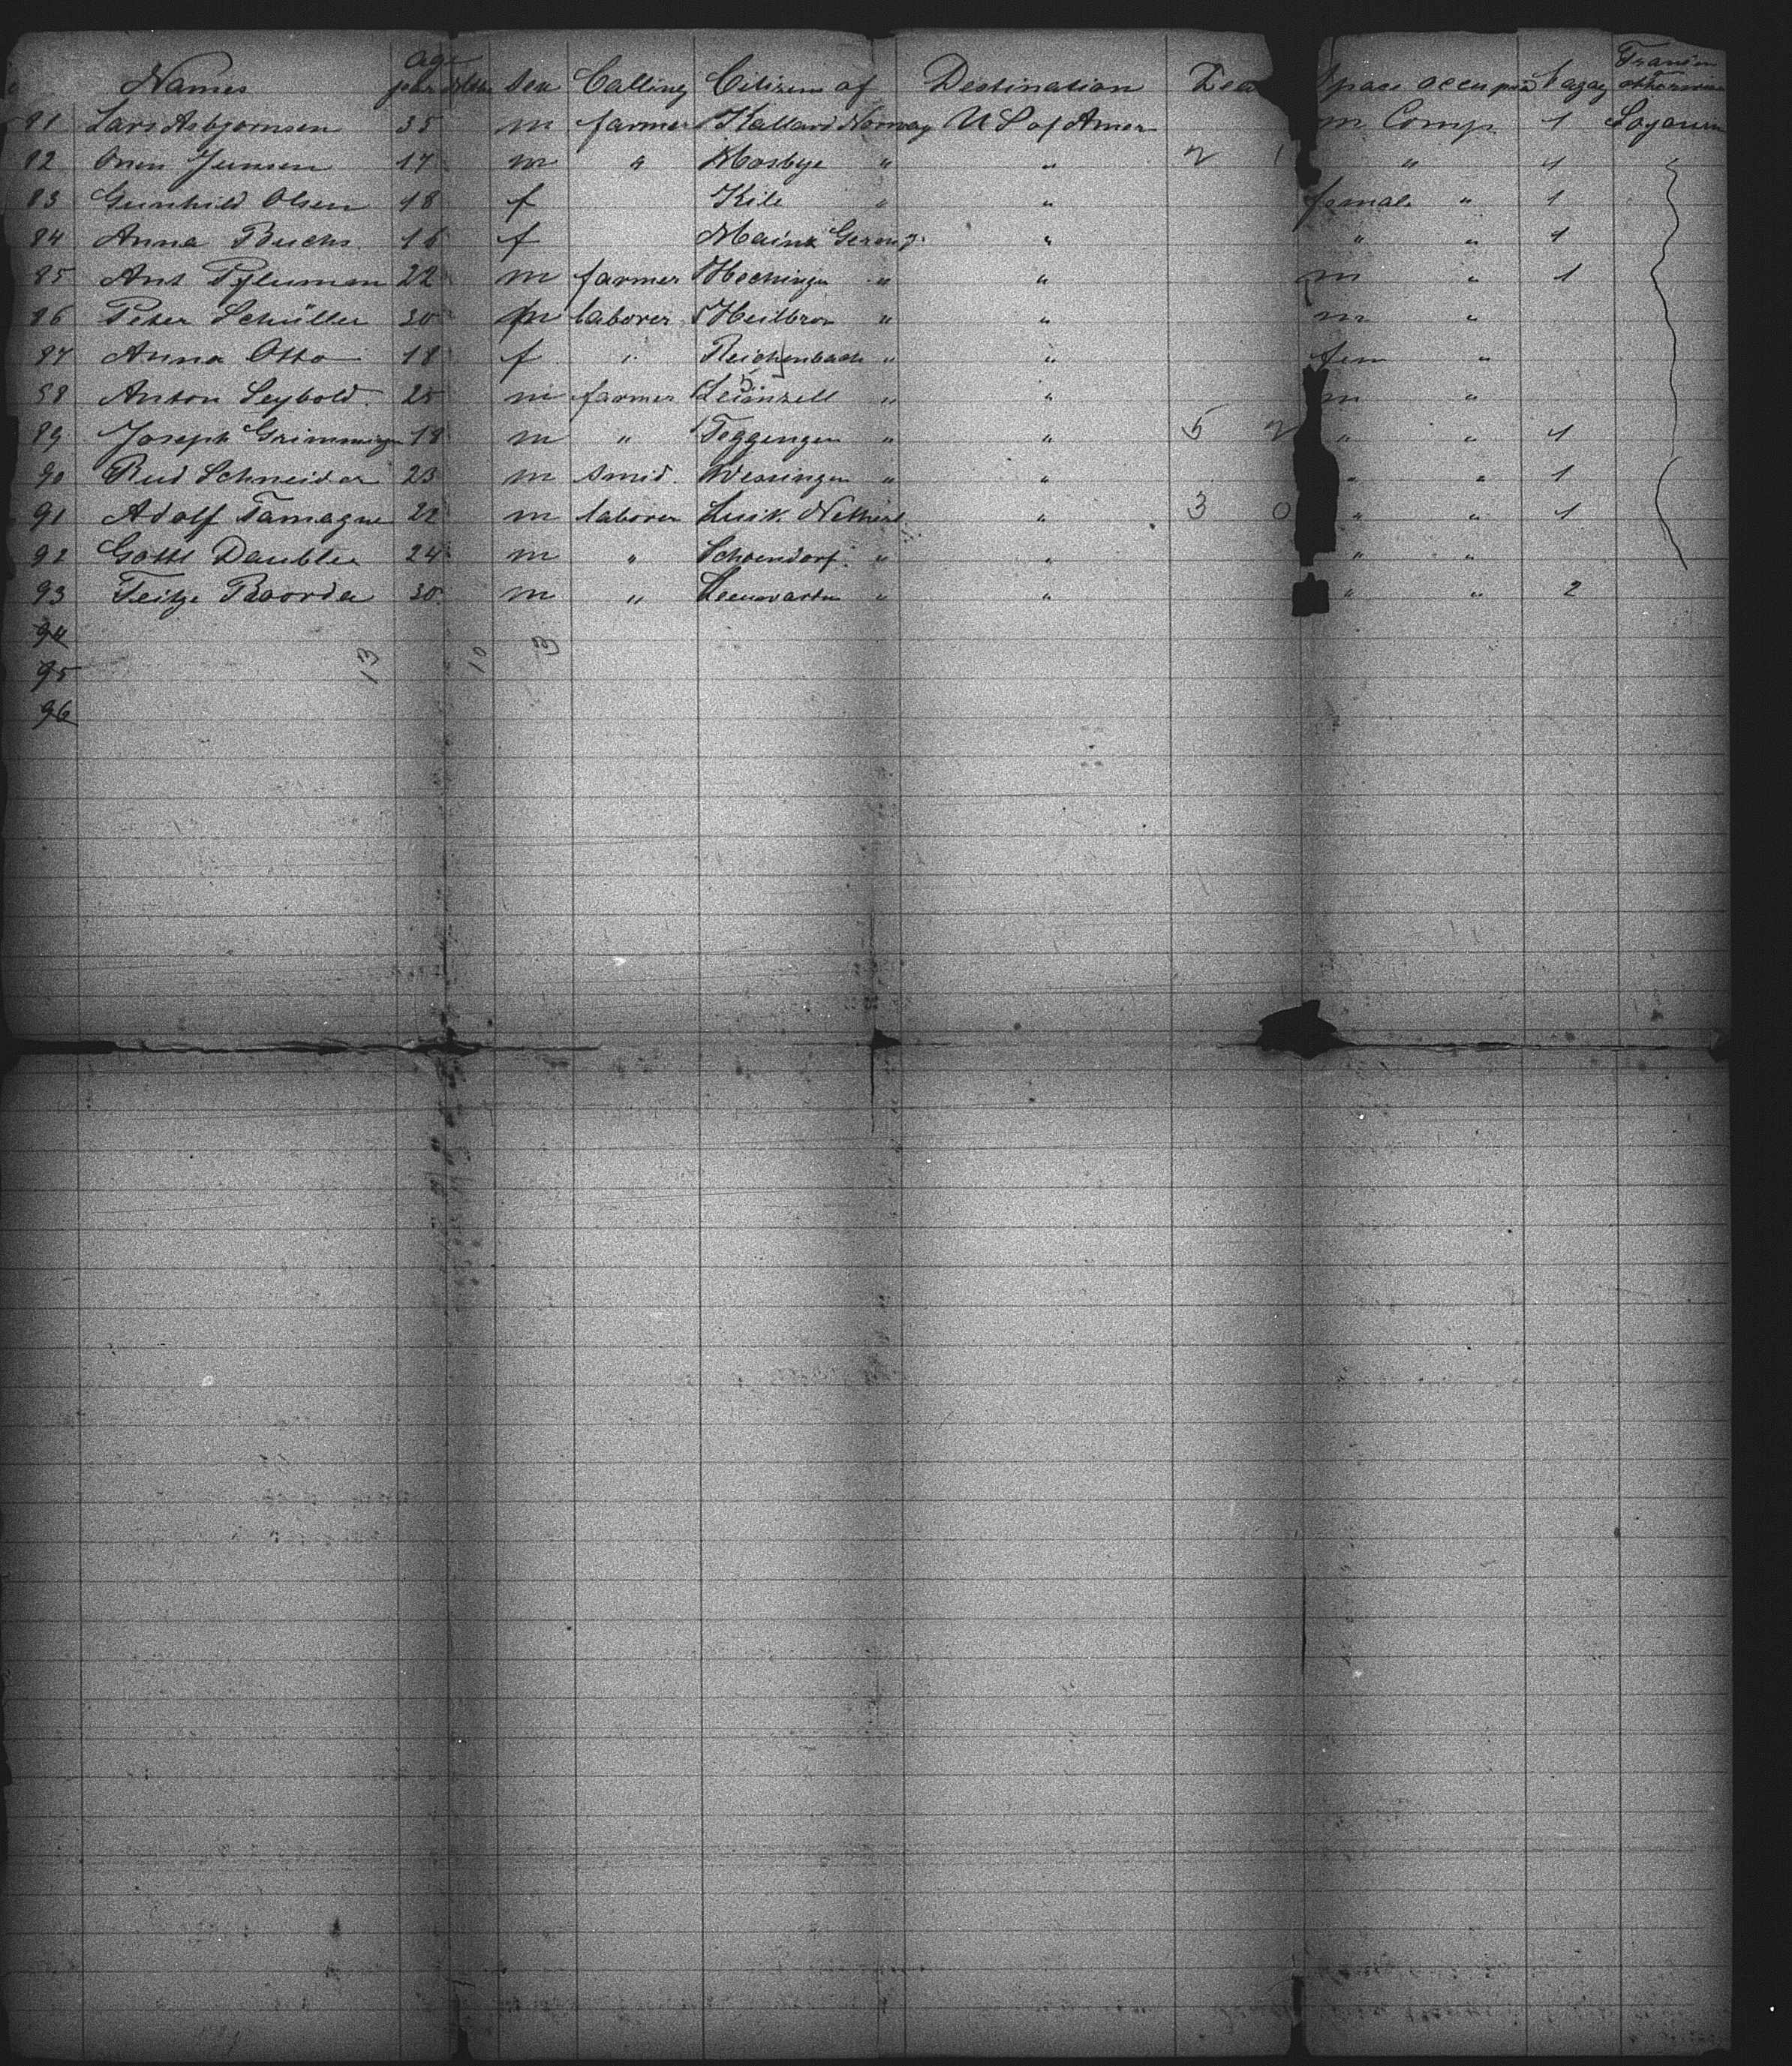 Names Age year Mths Sex Calling Citizen of Destination Dea Space occupied Bagag Transien
81 Lars Asbjornsen 35 m farmer Kallard Norway U S of Amer m Comp. 1 Sojourn
82 Jensen 17 m " Mosbye " " 2 1 " 1
83 Gunhild Olsen 18 f Kile " " female " 1
84 Anna Buchs 16 f Mainz Germ " " " 1
85 Ant Pflumm 22 m farmer Hechingen " " m " 1
86 Peter Schüller 30 m laborer Heilbron " " m "
87 Anna Otto 18 f " Reichenbach " " fem "
88 Anton Seybold 25 m farmer Leinzell " " m "
5
89 Joseph Grimminger 18 m " Toggingen " " 5 2 " " 1
90 Rud Schneider 23 m smid. Wessingen " " " " 1
91 Adolf Tamagne 22 m laborer Luik Netherl " 3 0 " " 1
92 Gottl Daubler 24 m " Schoendorf " " " "
93 Feitze Roorda 30 m " Leeuwarden " " " " 2
94
95 13 10 3
96